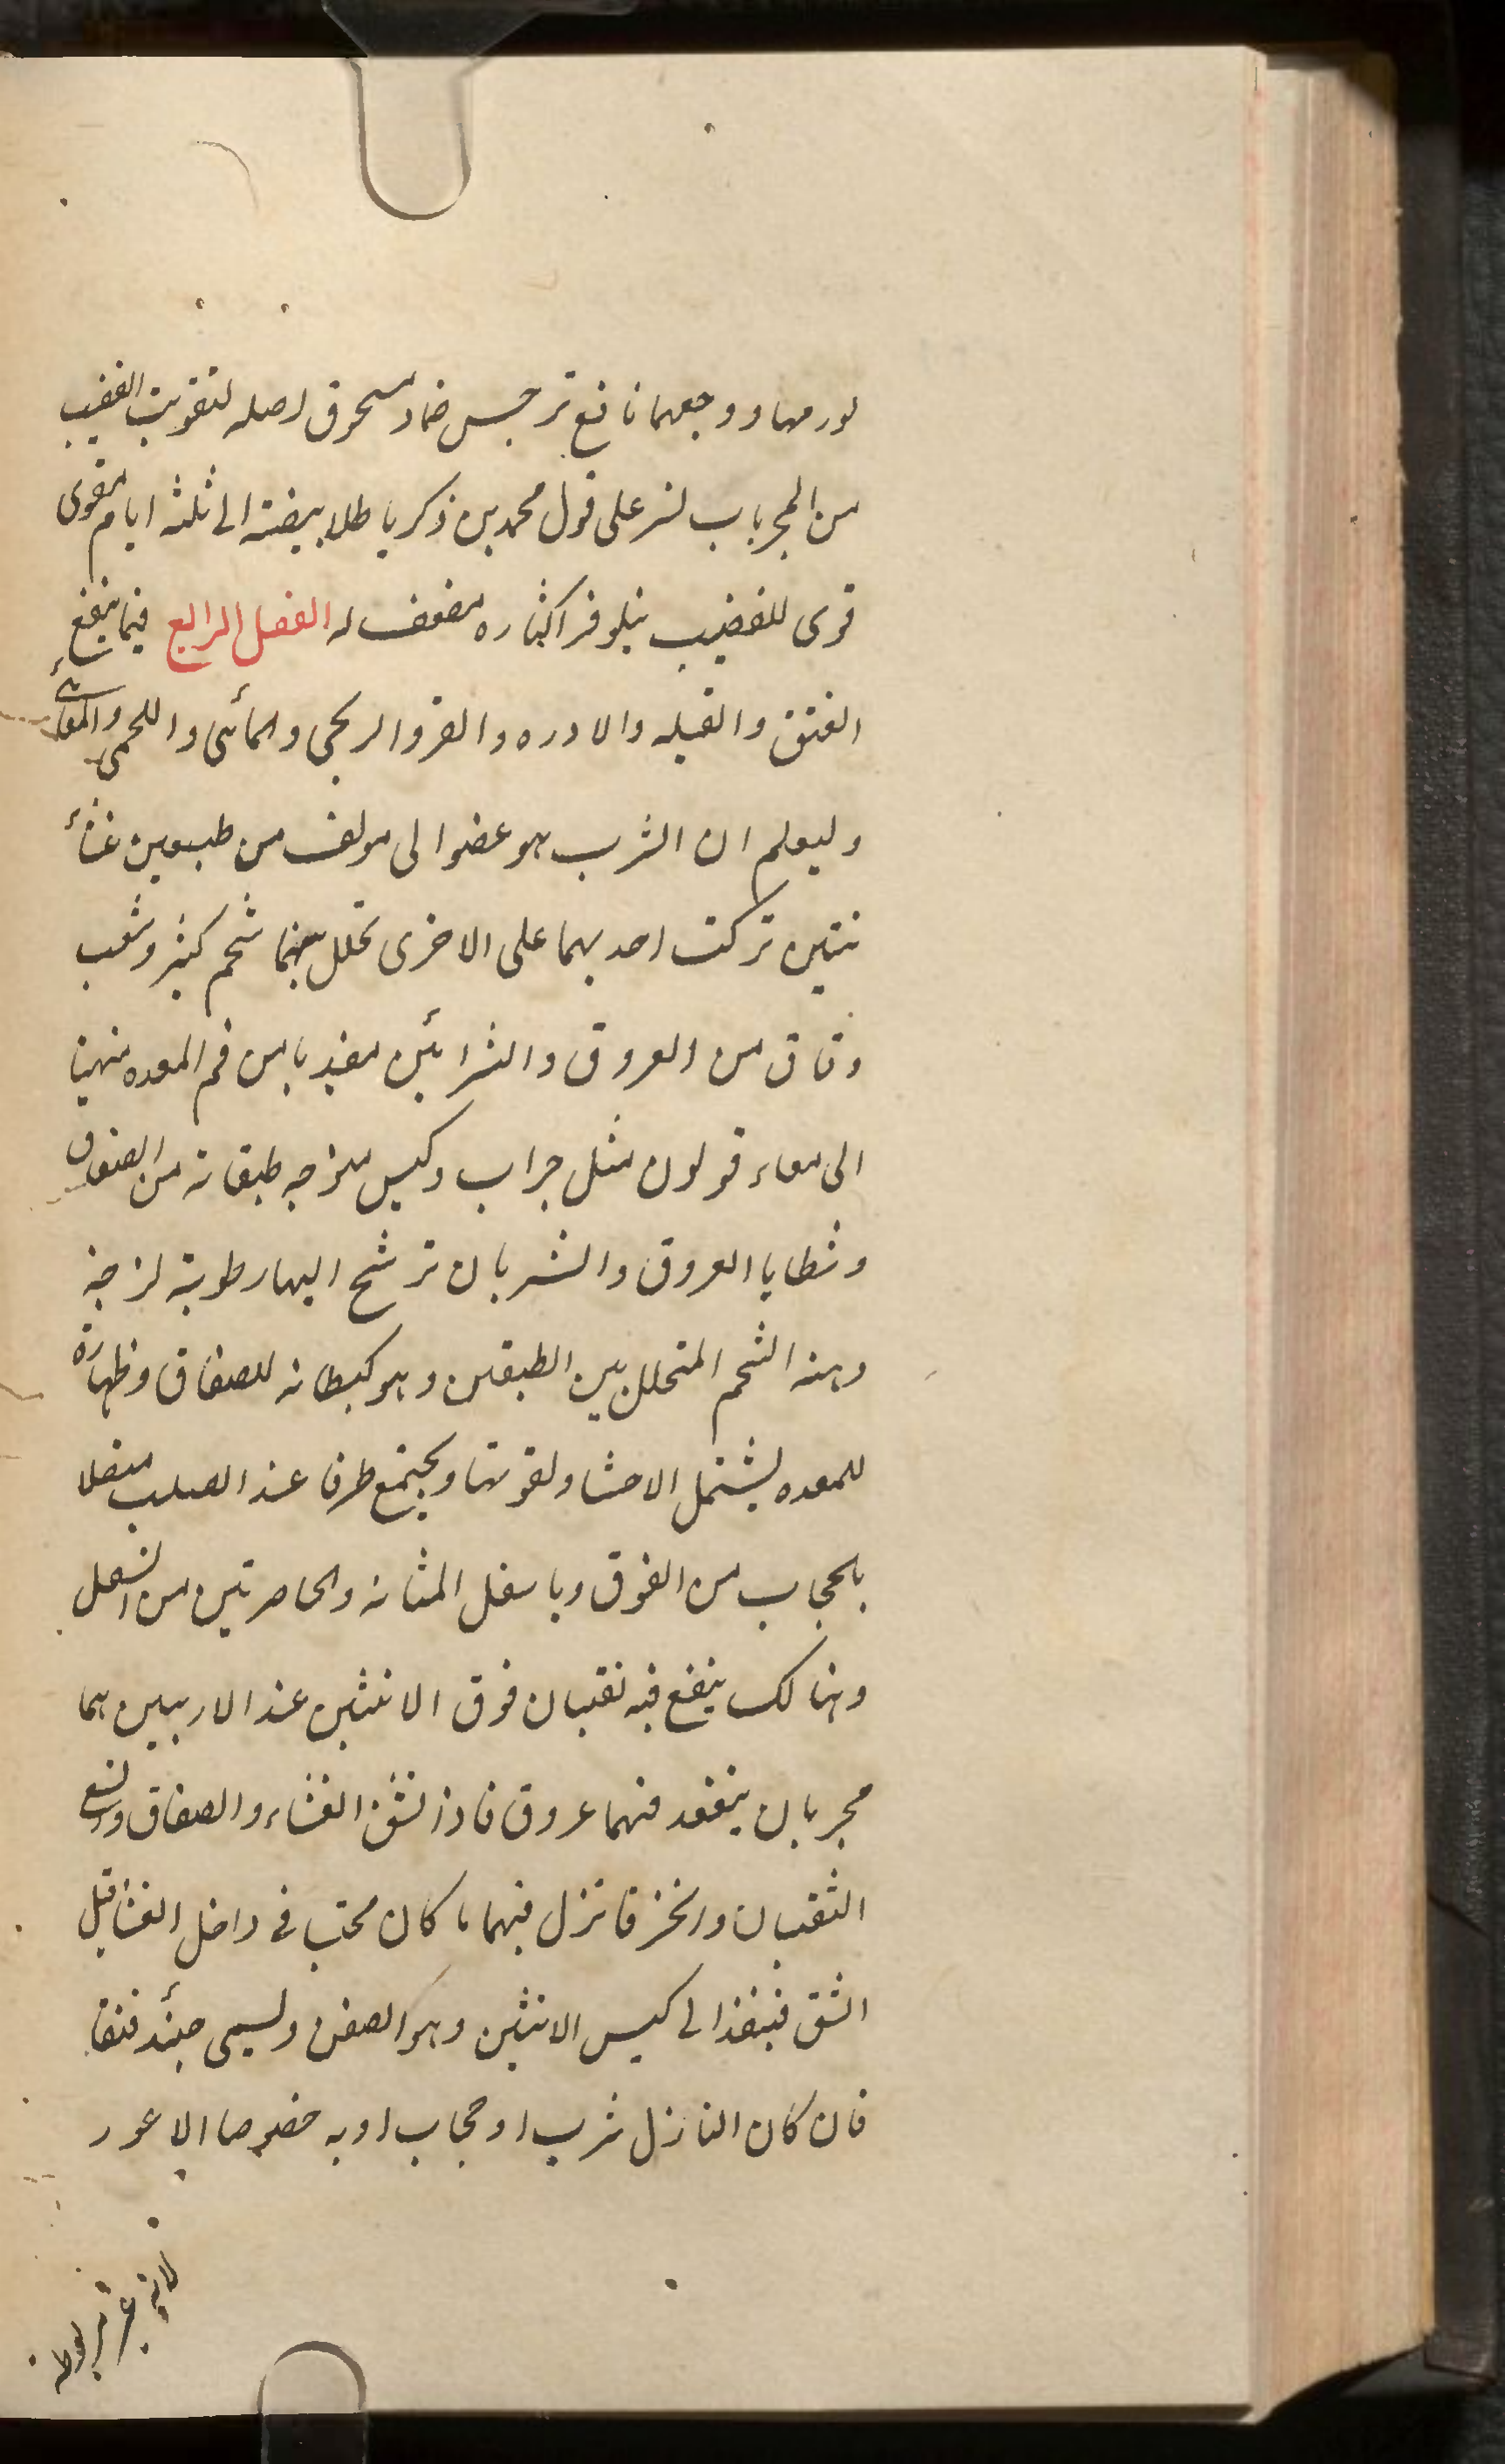 لورمها ووجعهما نافع نرجس ضماد مسحوق اصله لتقويت القضيب
من المجربات نسر على قول محمد بن ذكريا طلا بيضته الى ثلثه ايام مقوى
قوى للقضيب نيلوفر اكثاره مضعف له الفصل الرابع فيما ينفع
الفتق والقيله والادره والقرو الريحى والمائى واللحمى والمعائى
وليعلم ان الثرب هو عضو الى مولف من طبقتين غشائ
نتين تركت احديهما على الاخرى تخلل بينهما شحم كثير وشعب
دقاق من العروق والشرائين من فم المعده منتهيا
الى معاء قولون مثل جراب وكيس طبقاته من الصفاق
وشظايا العروق والشربان ترشح اليها رطوبة لزجة
وهذه الشحم المتخلل بين الطبقتين وهو كبطانه للصفاق وظهارة
للمعده ليشتمل الاحشا ولقوتها ويجتمع طرفا عند الصلب متصلا
بالحجاب من الفوق وباسفل المثانه والخاصرتين من اسفل
وهنالك ينفع فيه ثقبان فوق الانثيين عند الاربيتين هما
مجربان ينفقد فيهما عروق فاذا انشق الغشاء والصفاق واتسع
الثقبان وانخرقا نزل فيهما ما كان محتب فى داخل الغشا قبل
الشق فينفذ الى كيس الانثيين وهو الصفن ويسمى حينئد فتقا
فان كان النازل ثرب او حجاب او به خصوصا الاعور
لانه غير مربوط